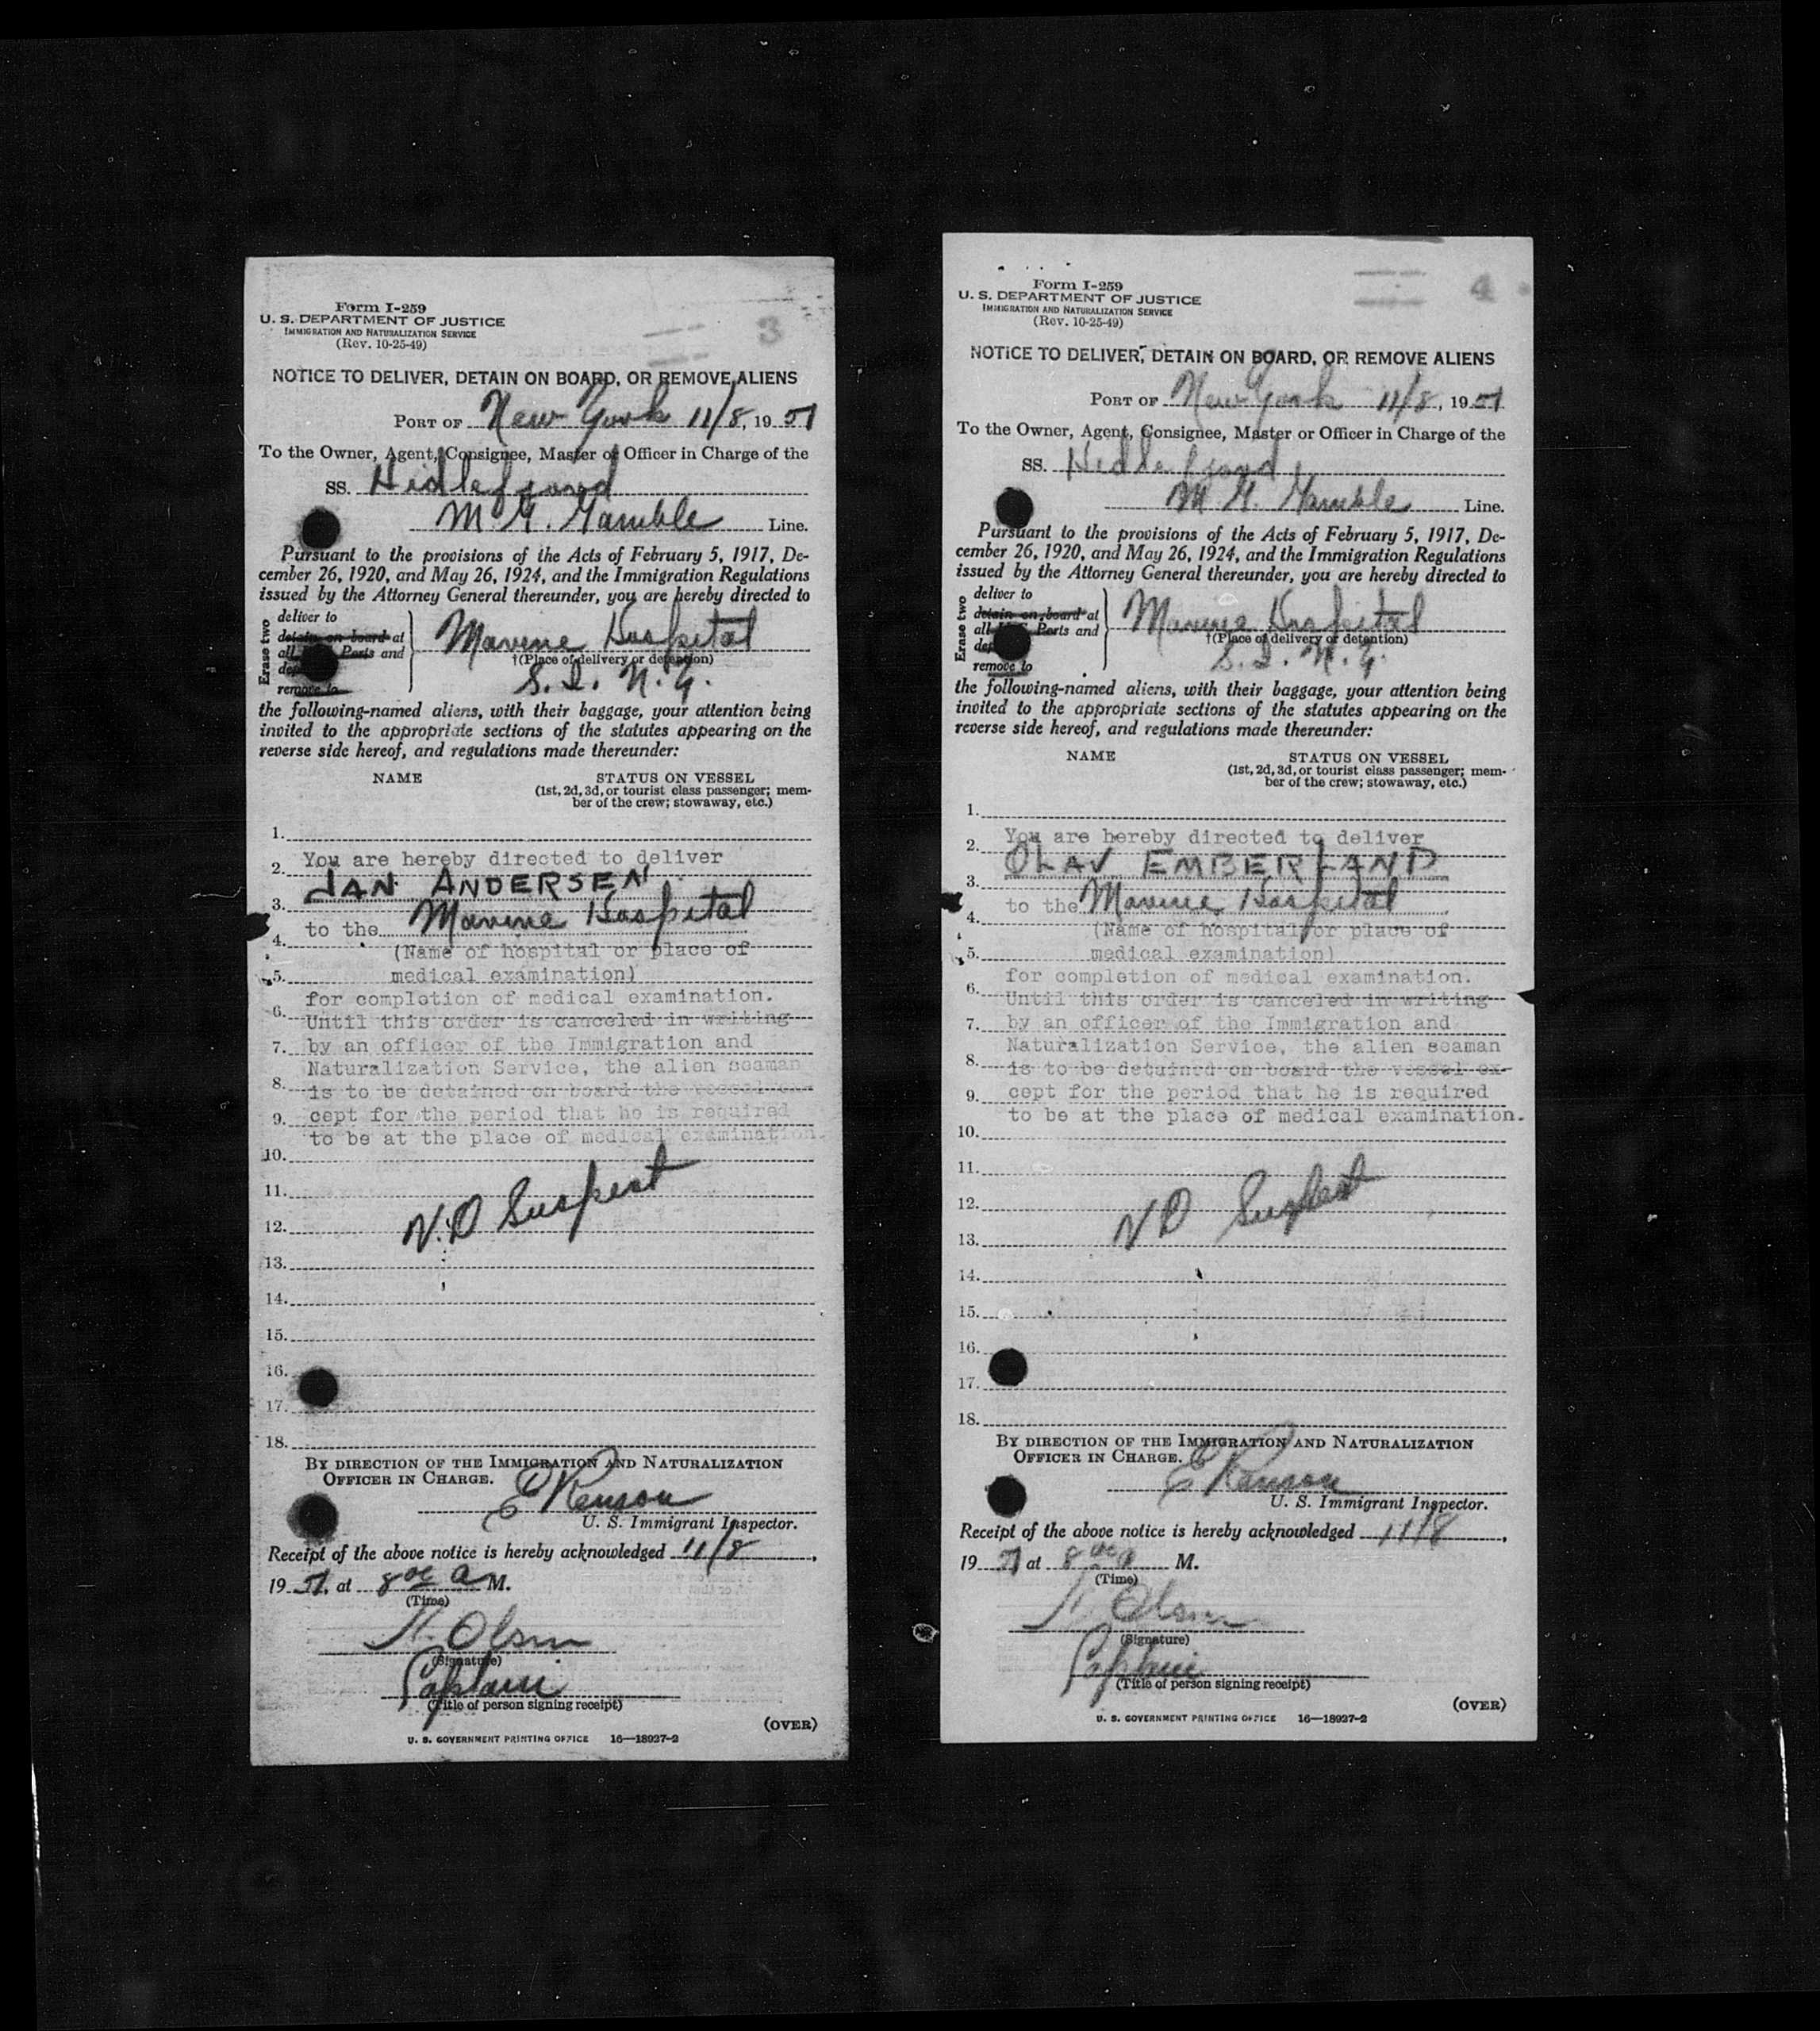 Form I-259
U. S. DEPARTMENT OF JUSTICE
IMMIGRATION AND NATURALIZATION SERVICE
(Rev. 10-25-49)
3
NOTICE TO DELIVER, DETAIN ON BOARD, OR REMOVE ALIENS
PORT OF New York 11/8, 1951
To the Owner, Agent, Consignee, Master or Officer in Charge of the
SS. Hidlefjord
M. G. Gamble Line.
Pursuant to the provisions of the Acts of February 5, 1917, De-
cember 26, 1920, and May 26, 1924, and the Immigration Regulations
issued by the Attorney General thereunder, you are hereby directed to
Erase two
deliver to
detain on board at
all Ports and
remove to
Marine Hospital
†(Place of delivery or detention)
S. I. N. Y.
the following-named aliens, with their baggage, your attention being
invited to the appropriate sections of the statutes appearing on the
reverse side hereof, and regulations made thereunder:
NAME STATUS ON VESSEL
(1st, 2d, 3d, or tourist class passenger; mem-
ber of the crew; stowaway, etc.)
1.
You are hereby directed to deliver
2.
JAN ANDERSEN
3.
to the Marine Hospital
4.
(Name of hospital or place of
5. medical examination)
for completion of medical examination.
6.
Until this order is canceled in writing
7. by an officer of the Immigration and
Naturalization Service, the alien seaman
8.
is to be detained on board the vessel ex-
9. cept for the period that he is required
to be at the place of medical examination.
10.
11.
V.D Suspect
12.
13.
14.
15.
16.
17.
18.
BY DIRECTION OF THE IMMIGRATION AND NATURALIZATION
OFFICER IN CHARGE.
U. S. Immigrant Inspector.
Receipt of the above notice is hereby acknowledged 11/8,
1951, at 8 00 a M.
(Time)
Olsen
(Signature)
Captain
(Title of person signing receipt)
(OVER)
U. S. GOVERNMENT PRINTING OFFICE 16—18927-2
Form I-259
U. S. DEPARTMENT OF JUSTICE
IMMIGRATION AND NATURALIZATION SERVICE
(Rev. 10-25-49)
4
NOTICE TO DELIVER, DETAIN ON BOARD, OR REMOVE ALIENS
PORT OF New York 11/8, 1951
To the Owner, Agent, Consignee, Master or Officer in Charge of the
SS. Hidlefjord
M. G. Gamble Line.
Pursuant to the provisions of the Acts of February 5, 1917, De-
cember 26, 1920, and May 26, 1924, and the Immigration Regulations
issued by the Attorney General thereunder, you are hereby directed to
Erase two
deliver to
detain on board at
all Ports and
remove to
Marine Hospital
†(Place of delivery or detention)
S. I. N. Y.
the following-named aliens, with their baggage, your attention being
invited to the appropriate sections of the statutes appearing on the
reverse side hereof, and regulations made thereunder:
NAME STATUS ON VESSEL
(1st, 2d, 3d, or tourist class passenger; mem-
ber of the crew; stowaway, etc.)
1.
You are hereby directed to deliver
2.
OLAV EMBERLAND
3.
to the Marine Hospital
4.
(Name of hospital or place of
5. medical examination)
for completion of medical examination.
6.
Until this order is canceled in writing
7. by an officer of the Immigration and
Naturalization Service, the alien seaman
8.
is to be detained on board the vessel ex-
9. cept for the period that he is required
to be at the place of medical examination.
10.
11.
12.
V D Suspect
13.
14.
15.
16.
17.
18.
BY DIRECTION OF THE IMMIGRATION AND NATURALIZATION
OFFICER IN CHARGE.
U. S. Immigrant Inspector.
Receipt of the above notice is hereby acknowledged 11/8,
1951 at 8 00 a M.
(Time)
Olsen
(Signature)
Captain
(Title of person signing receipt)
(OVER)
U. S. GOVERNMENT PRINTING OFFICE 16—18927-2